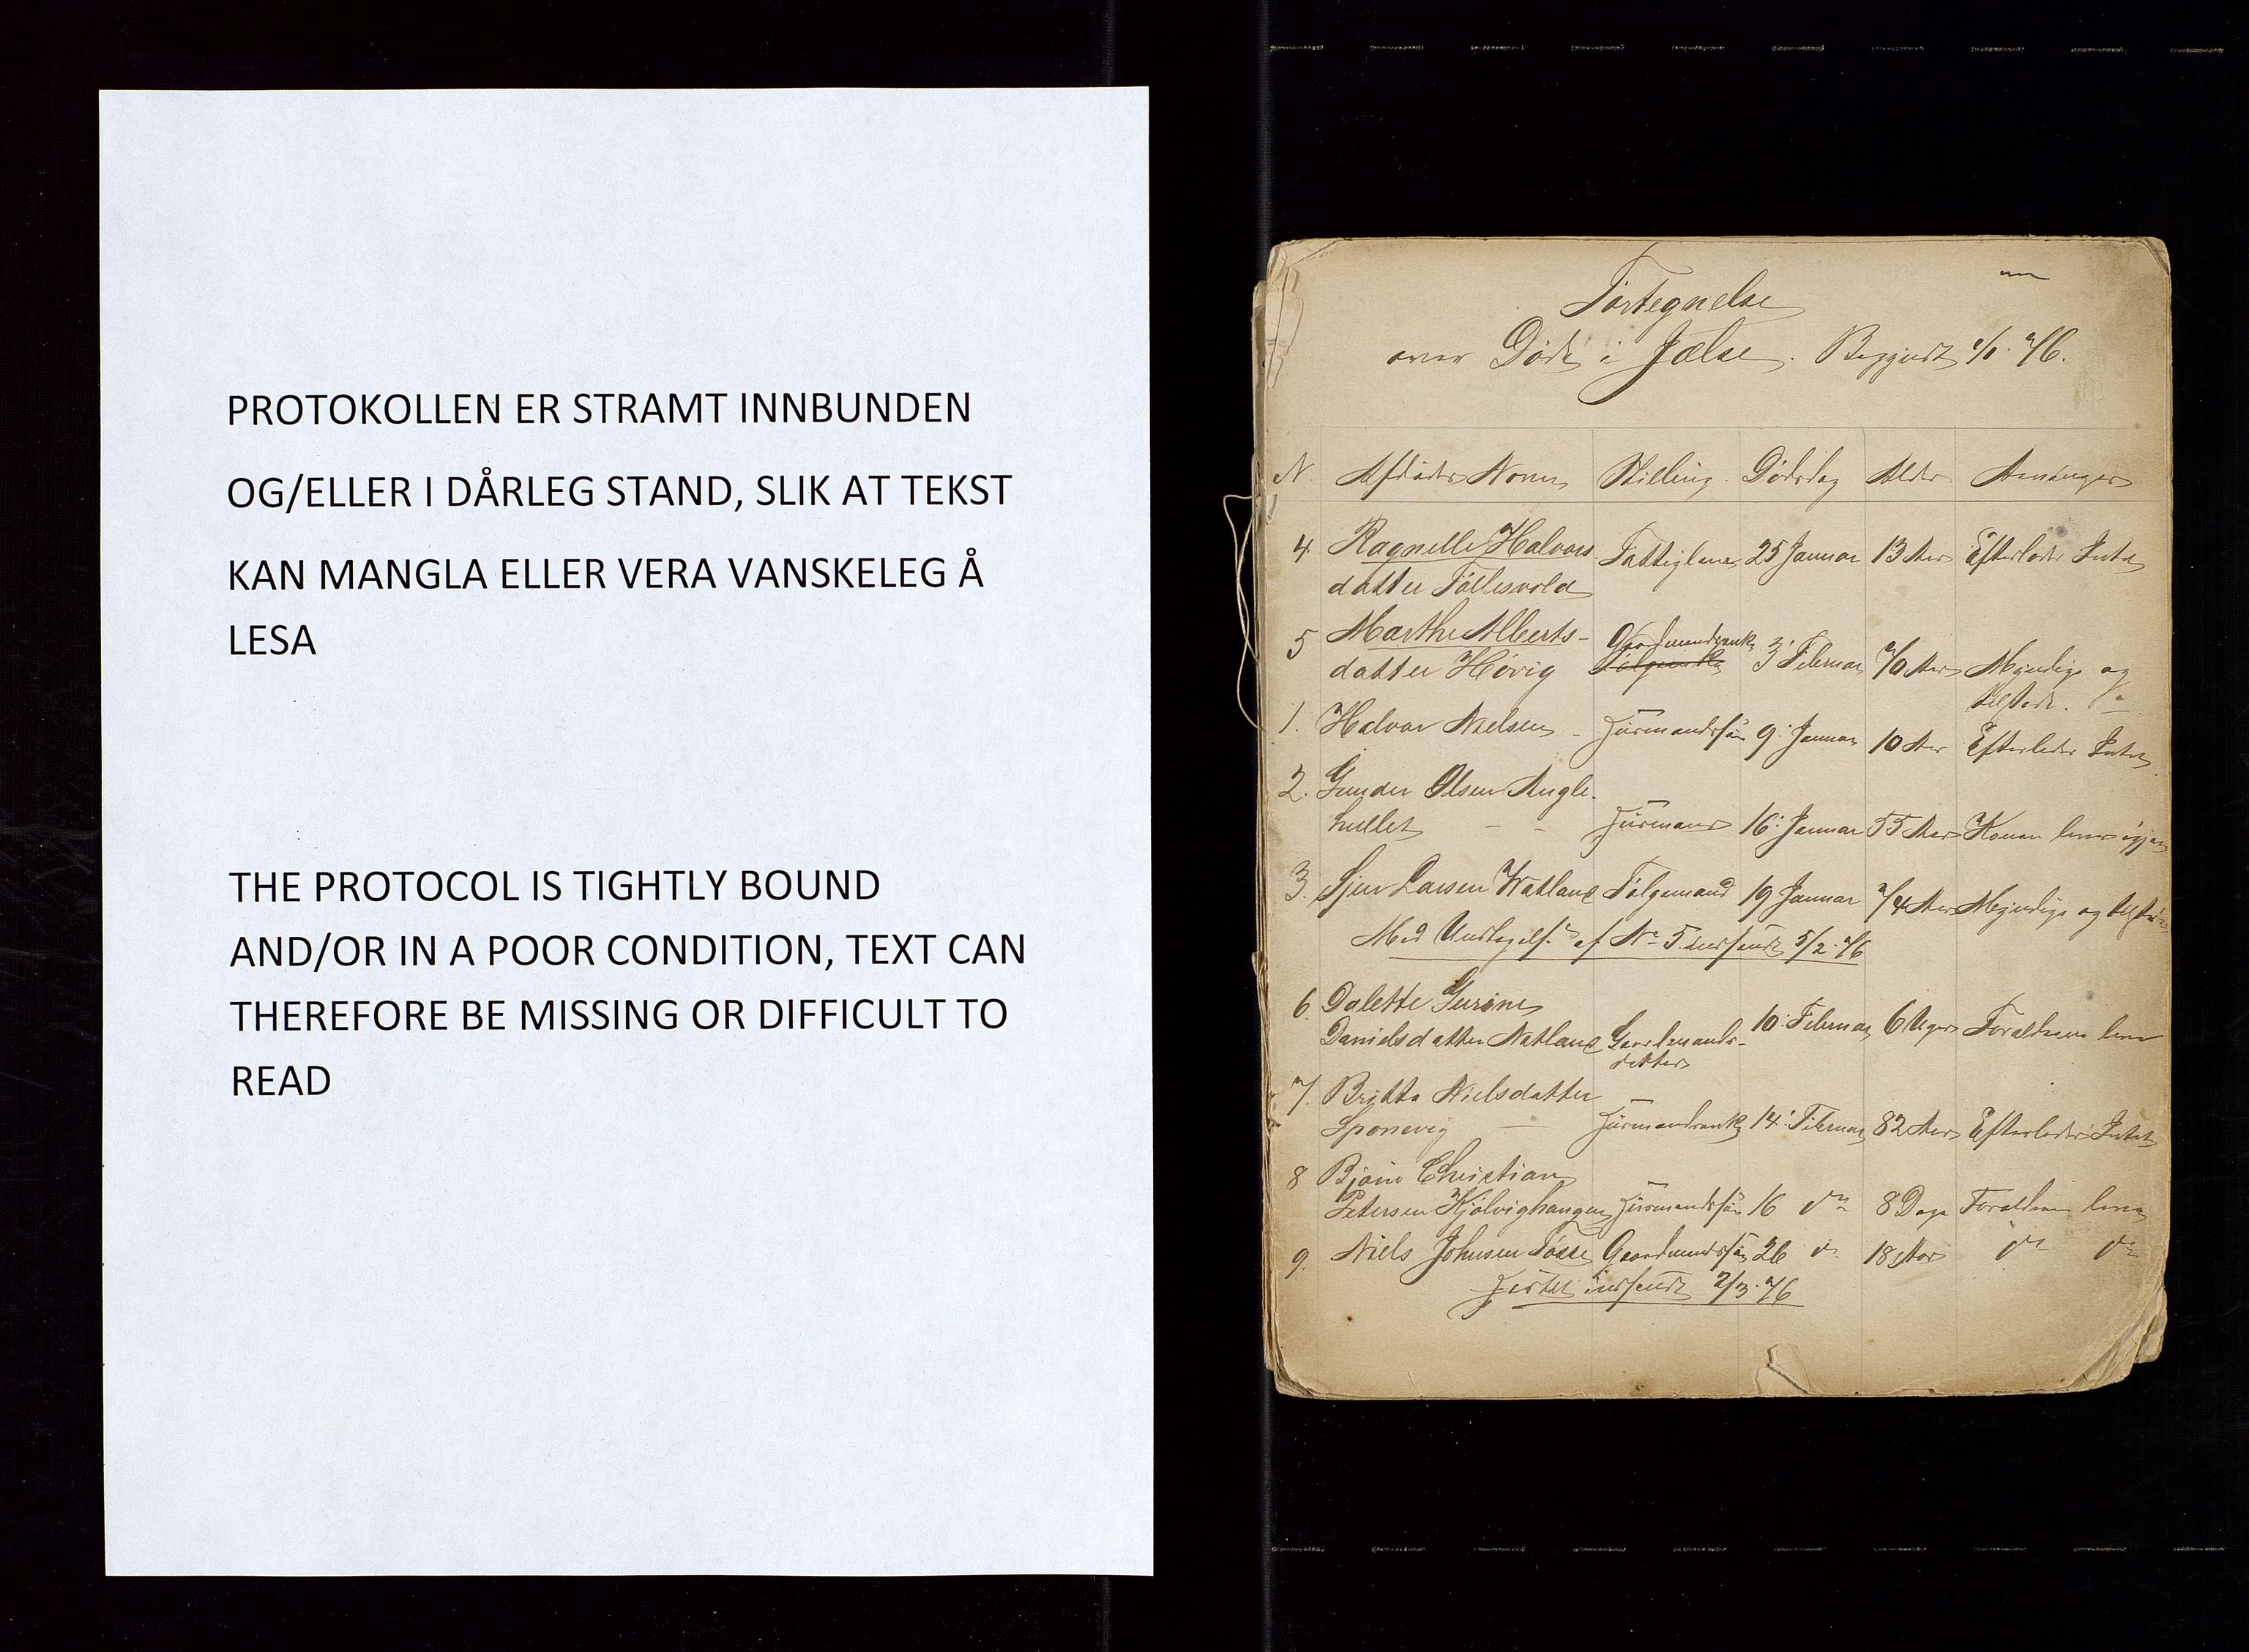 PROTOKOLLEN ER STRAMT INNBUNDEN
OG/ELLER I DÅRLEG STAND, SLIK AT TEKST
KAN MANGLA ELLER VERA VANSKELEG Å
LESA
THE PROTOCOL IS TIGHTLY BOUND
AND/OR IN A POOR CONDITION, TEXT CAN
THEREFORE BE MISSING OR DIFFICULT TO
READ
Fortegnelse
over Døde i Jælse. Begyndt 1/1 76.
N Afdødes Navn Stilling Dødsdag Alder
4 Ragnelle Halvors 25 Januar 13 Aar Efterlader Intet
datter
5 Marthe Alberts- Gaardmandsenke
datter Høvig 3' Februar 70 Aar Myndige og
tilstede.
1. Halvor Nielsen - Huusmandssøn 9' Januar 10 Aar Efterlader Intet
2. Gunder Olsen Angle-
hullet - - Huusmand 16' Januar 55 Aar Konen lever igjen
3. Larsen Watland Følgemand 19 Januar 74 Aar Myndige og
Med Undtagelse af No 5 indsendt 5/2 76
6. Dalette Gurine
Danielsdatter Natland Gaardmands- 10' Februar 6 Uger Forældrene lever
datter
7. Britta Nielsdatter
Sponevig - Huusmandsenke 14' Februar 82 Aar Efterlader Intet
8 Bjørn Christian
Petersen Kjølvighaugen Huusmandssøn 16 do 8 Dage Forældrene lever
9. Niels Johnsen Fosse Gaardmandssøn 26 do 18 Aar do do
Listen indsendt 2/3 76